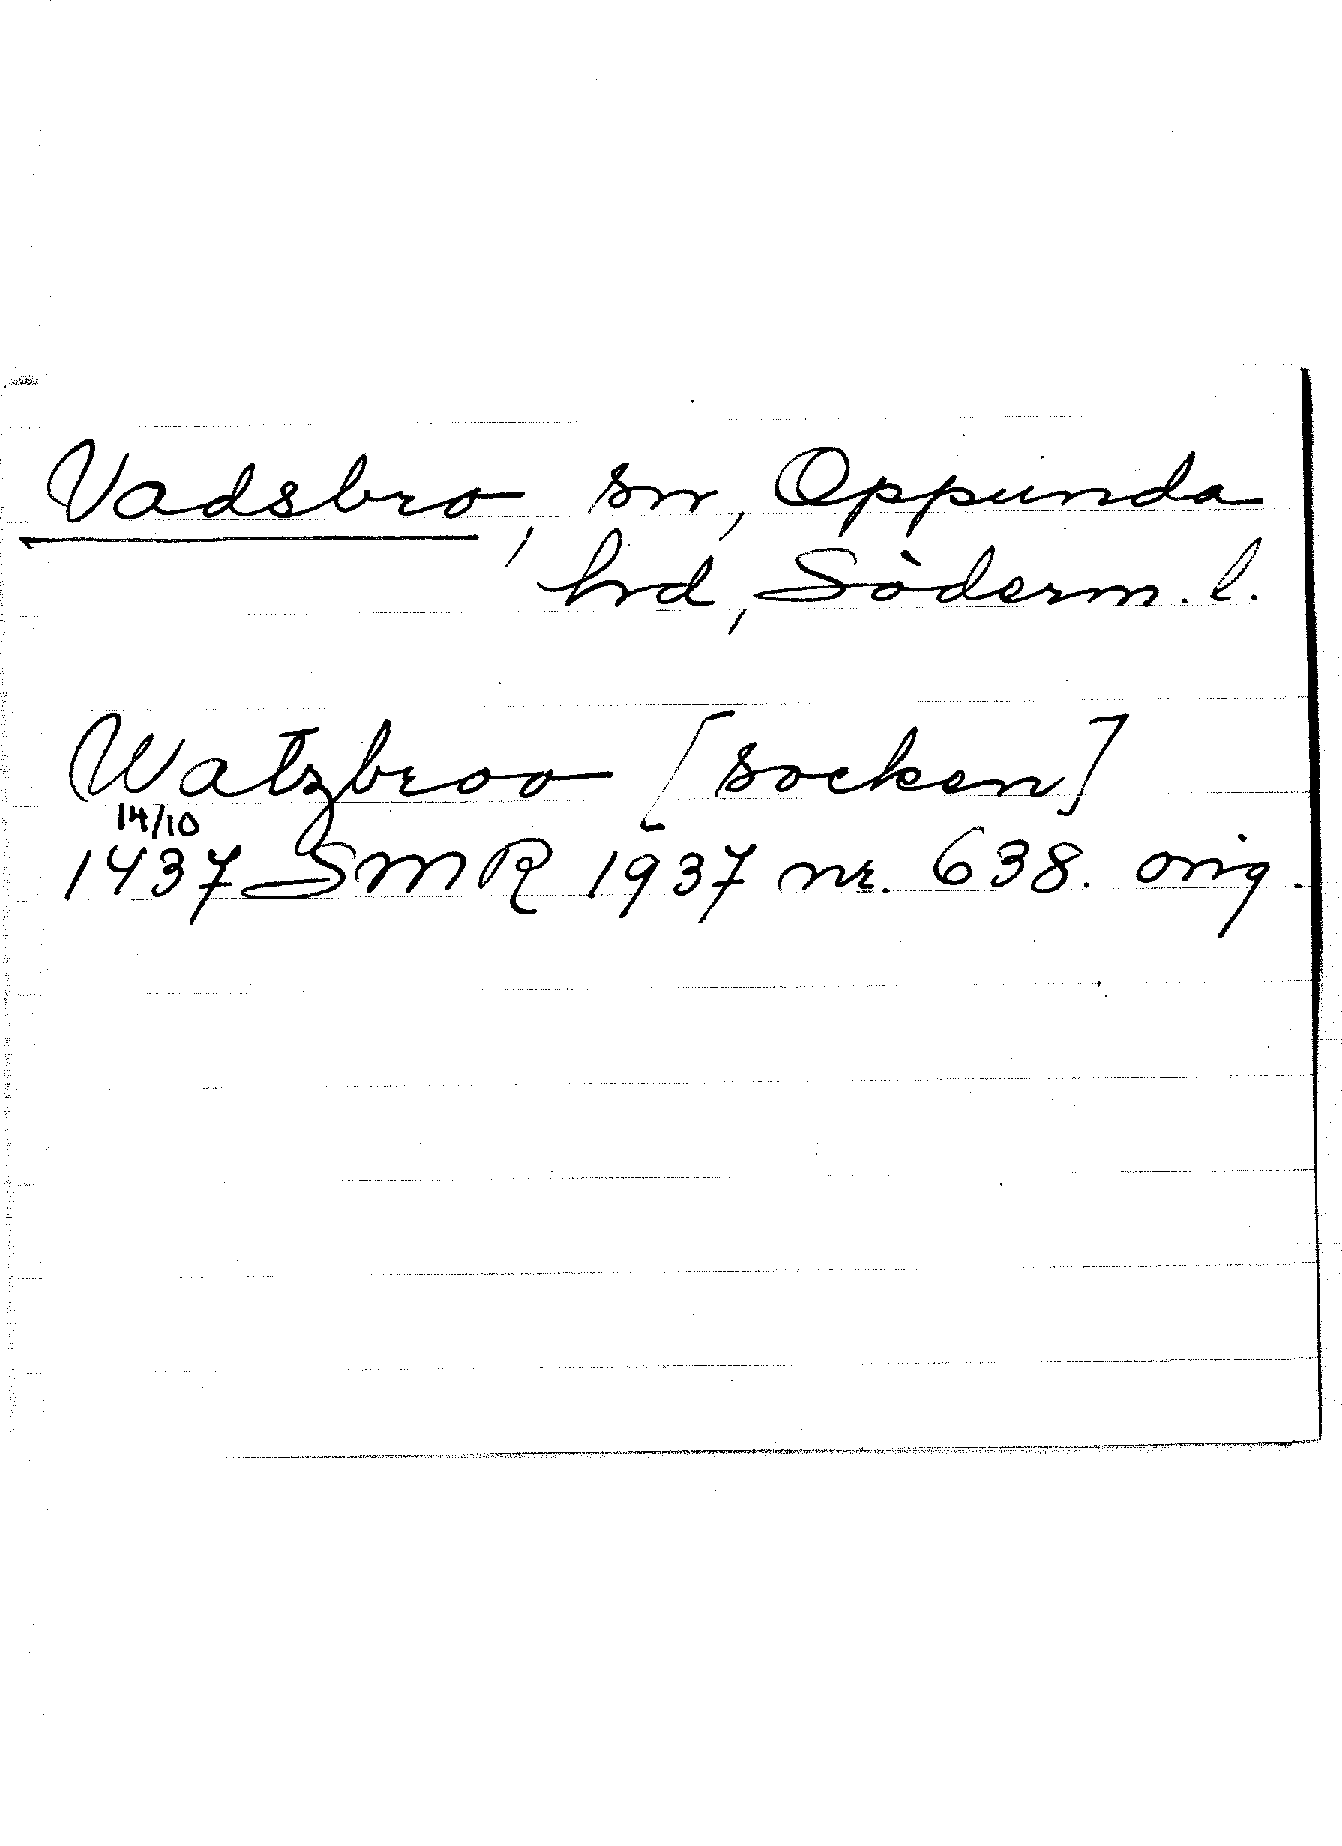 Vadsbro, sn, Oppunda
hd, Söderm. l.
Watzbroo [socken]
14/10
1437 SMR 1937 nr. 638. orig.